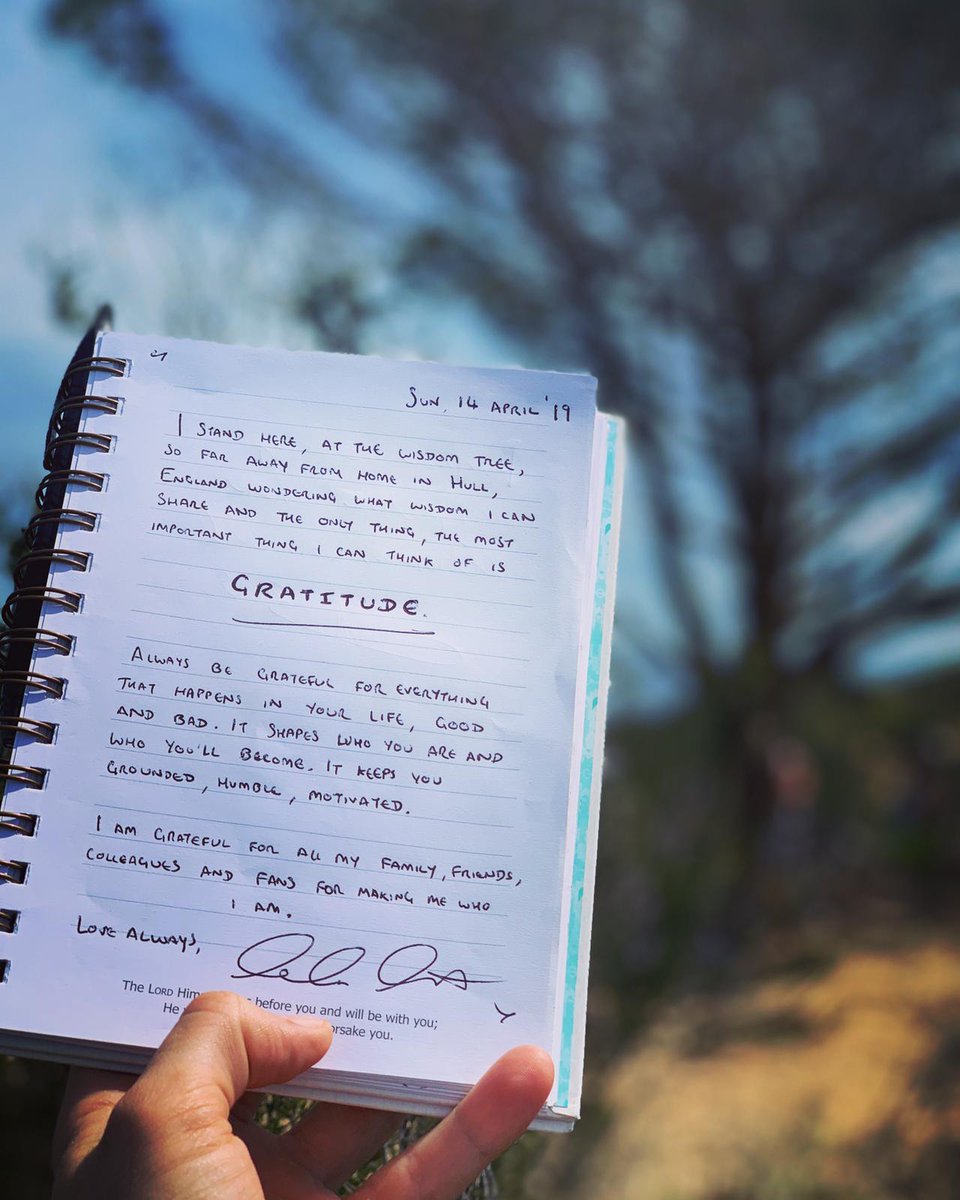 SUN, 14 APRIL '19
I STAND HERE, AT THE WISDOM TREE,
SO FAR AWAY FROM HOME IN HULL,
ENGLAND WONDERING WHAT WISDOM I CAN
SHARE AND THE ONLY THING, THE MOST
IMPORTANT THING I CAN THINK OF IS
GRATITUDE.
ALWAYS BE GRATEFUL FOR EVERYTHING
THAT HAPPENS IN YOUR LIFE, GOOD
AND BAD. IT SHAPES WHO YOU ARE AND
WHO YOU'LL BECOME. IT KEEPS YOU
GROUNDED, HUMBLE, MOTIVATED.
I AM GRATEFUL FOR ALL MY FAMILY, FRIENDS,
COLLEAGUES AND FANS FOR MAKING ME WHO
I AM.
LOVE ALWAYS,
The LORD before you and will be with you;
He you.